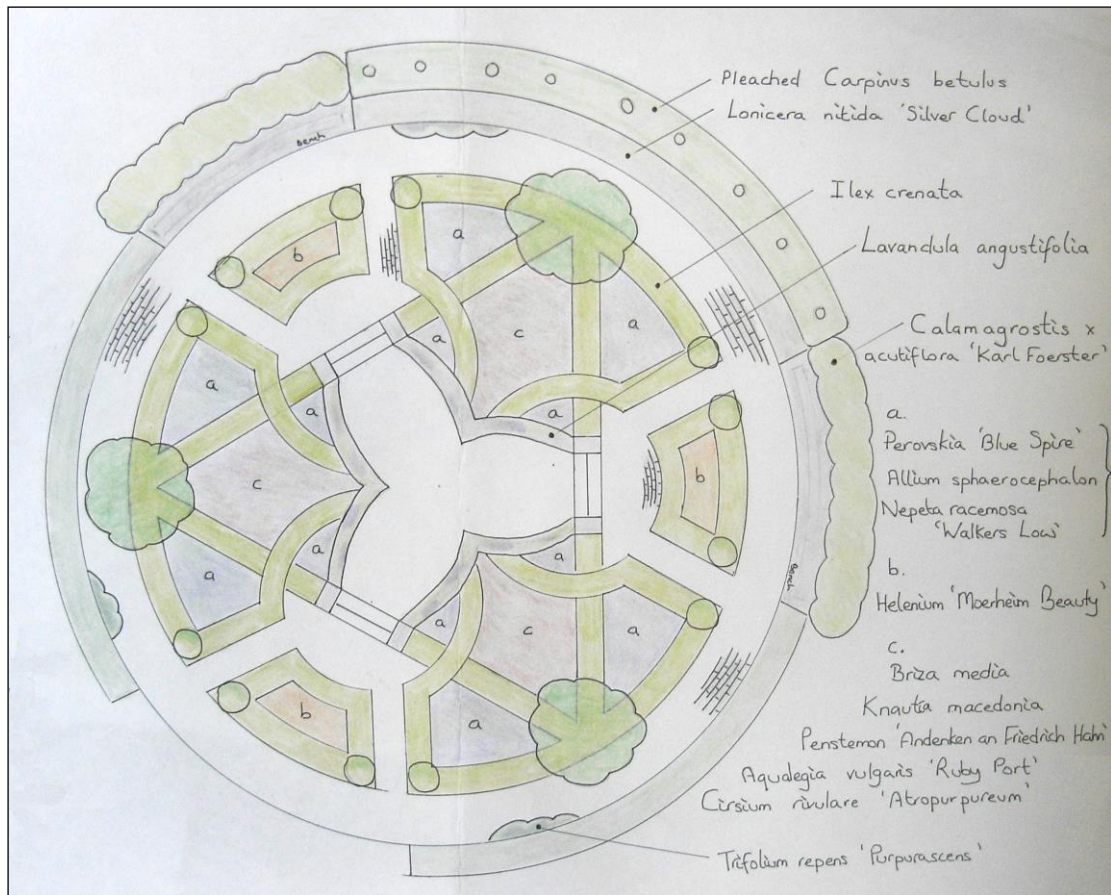 Pleached Carpinus betulus
Lonicera nitida 'Silver Cloud'
Ilex crenata
Lavandula angustifolia
Calamagrostis x
acutiflora 'Karl Foerster'
a.
Perovskia 'Blue Spire'
Allium sphaerocephalon
Nepeta racemosa
'Walkers Low'
b.
Helenium 'Moerheim Beauty'
c.
Briza media
Knautia macedonia
Penstemon 'Andenken an Friedrich Hahn'
Aqualegia vulgaris 'Ruby Port'
Cirsium rivulare 'Atropurpureum'
Trifolium repens 'Purpurascens'
bench
a
b
a
a
c
a
a
a
b
c
a
a
a
Bench
a
c
a
b
a